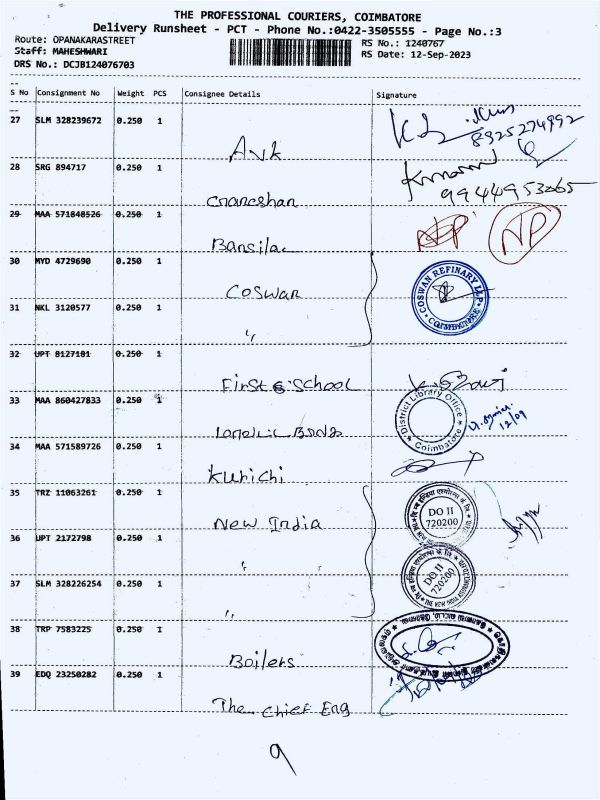 THE PROFESSIONAL COURIERS, COIMBATORE
Delivery Runsheet - PCT - Phone No.:0422-3505555 - Page No.:3
Route: OPANAKARASTREET RS No.: 1240767
Staff: MAHESHWARI RS Date: 12-Sep-2023
DRS No.: DCJB124076703
S No Consignment No Weight PCS Consignee Details Signature
27 SLM 328239672 0.250 1
8925274992
Avk
28 SRG 894717 0.250 1
9944953065
29 MAA 571848526 0.250 1
NP
Bansilal
30 MYD 4729690 0.250 1
Coswan
COSWAN REFINARY LLP
COIMBATORE
31 NKL 3120577 0.250 1
"
32 UPT 8127181 0.250 1
First School
33 MAA 860427833 0.250 1
District Library Office
Coimbatore
12/09
34 MAA 571589726 0.250 1
Kurichi
35 TRZ 11063261 0.250 1
DO II
720200
New India
36 UPT 2172798 0.250 1
"
DO II
720200
37 SLM 328226254 0.250 1
"
38 TRP 7583225 0.250 1
Boilers
39 EDQ 23250282 0.250 1
The Chief Eng
9